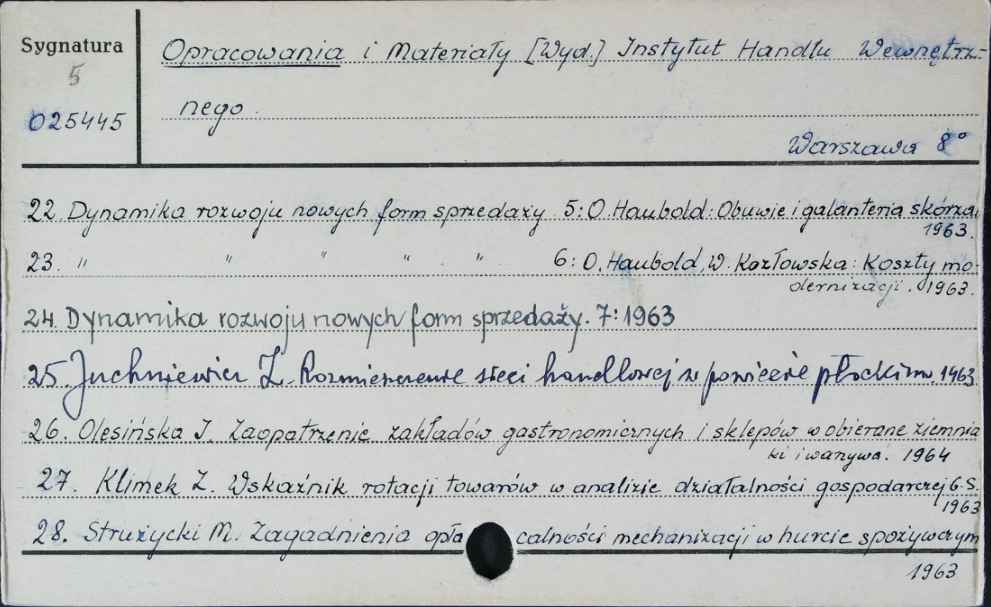 Sygnatura
5
025445
Opracowania i Materiały [Wyd.] Instytut Handlu Wewnętrz-
nego.
Warszawa 8°
22. Dynamika rozwoju nowych form sprzedaży 5: O. Haubold: Obuwie i galanteria skórza.
1963.
23. " " " " " 6: O. Haubold, W. Kozłowska: Koszty mo-
dernizacji. 1963.
24. Dynamika rozwoju nowych form sprzedaży. 7: 1963
25. Juchniewicz Z. Rozmieszczenie sieci handlowej w powiecie płockim. 1963
26. Olesińska J. Zaopatrzenie zakładów gastronomicznych i sklepów w obierane ziemnia
ki i warzywa. 1964
27. Klimek Z. Wskaźnik rotacji towarów w analizie działalności gospodarczej G.S.
1963
28. Strużycki M. Zagadnienia opłacalności mechanizacji w hurcie spożywczym
1963